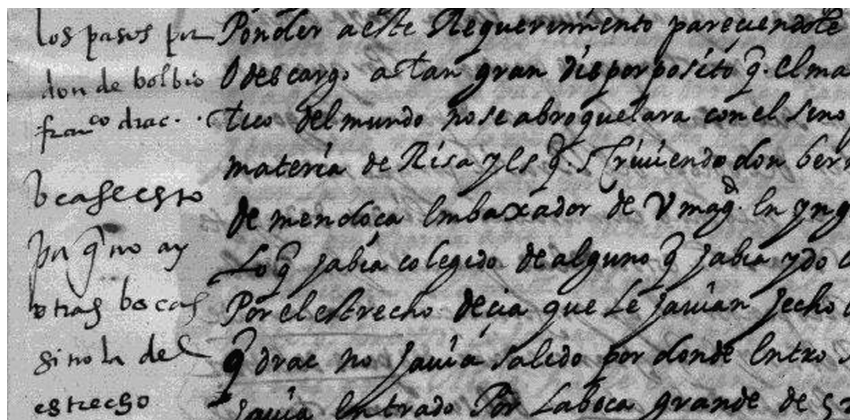 los pasos por
donde bolbio
franco drac.
beaseesto
pa q̃ no ay
otras bocas
sino la del
estrecho
Ponder a este Requerimiento pareciendole
O descargo a tan gran disporposito q̃. el ma
tico del mundo no se abroquelara con el sino
materia de Risa y es q̃. scriuiendo don ber
de mendoça embaxador de V mag̃d. en yng
Lo q̃ jabia colegido de alguno q̃ jabia ydo
Por el estrecho decia que le jauian jecho
q̃ drac no jauia salido por donde entro
jauia entrado Por la boca grande de